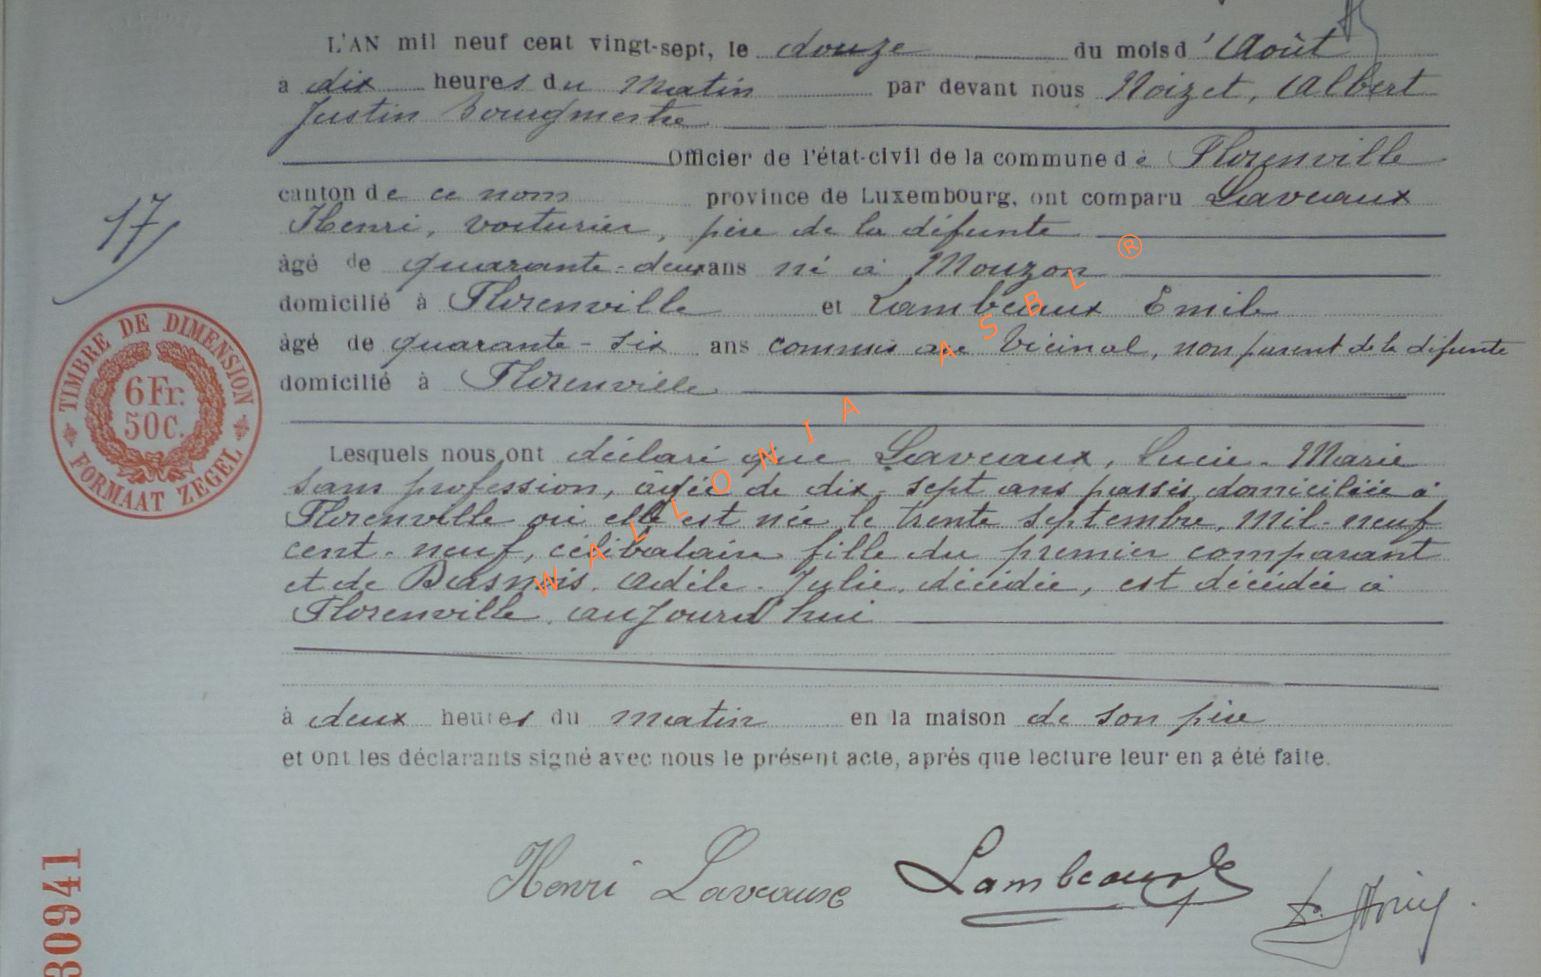 L'AN mil neuf cent vingt-sept, le douze du mois d'Août
à dix heures du matin par devant nous Noizet, Albert
Justin bourgmestre
Officier de l'état-civil de la commune de Florenville
canton de ce nom province de Luxembourg, ont comparu Laveaux
Henri, voiturier, père de la défunte
âgé de quarante-deux ans né à Mouzon
domicilié à Florenville et Lambeaux Emile
âgé de quarante-six ans commis au Vicinal, non parent de la défunte
domicilié à Florenville
17
TIMBRE DE DIMENSION
6 Fr.
50 C.
FORMAAT ZEGEL
Lesquels nous ont déclaré que Laveaux, Lucie-Marie
sans profession, âgée de dix-sept ans passés, domiciliée à
Florenville où elle est née le trente septembre, mil-neuf
cent-neuf, célibataire fille du premier comparant
et de Adèle-Julie, décédée, est décédée à
Florenville, aujourd'hui
à deux heures du matin en la maison de son père
et ont les déclarants signé avec nous le présent acte, après que lecture leur en a été faite.
Henri Laveaux Lambeaux
30941
WALLONIA ASBL ®